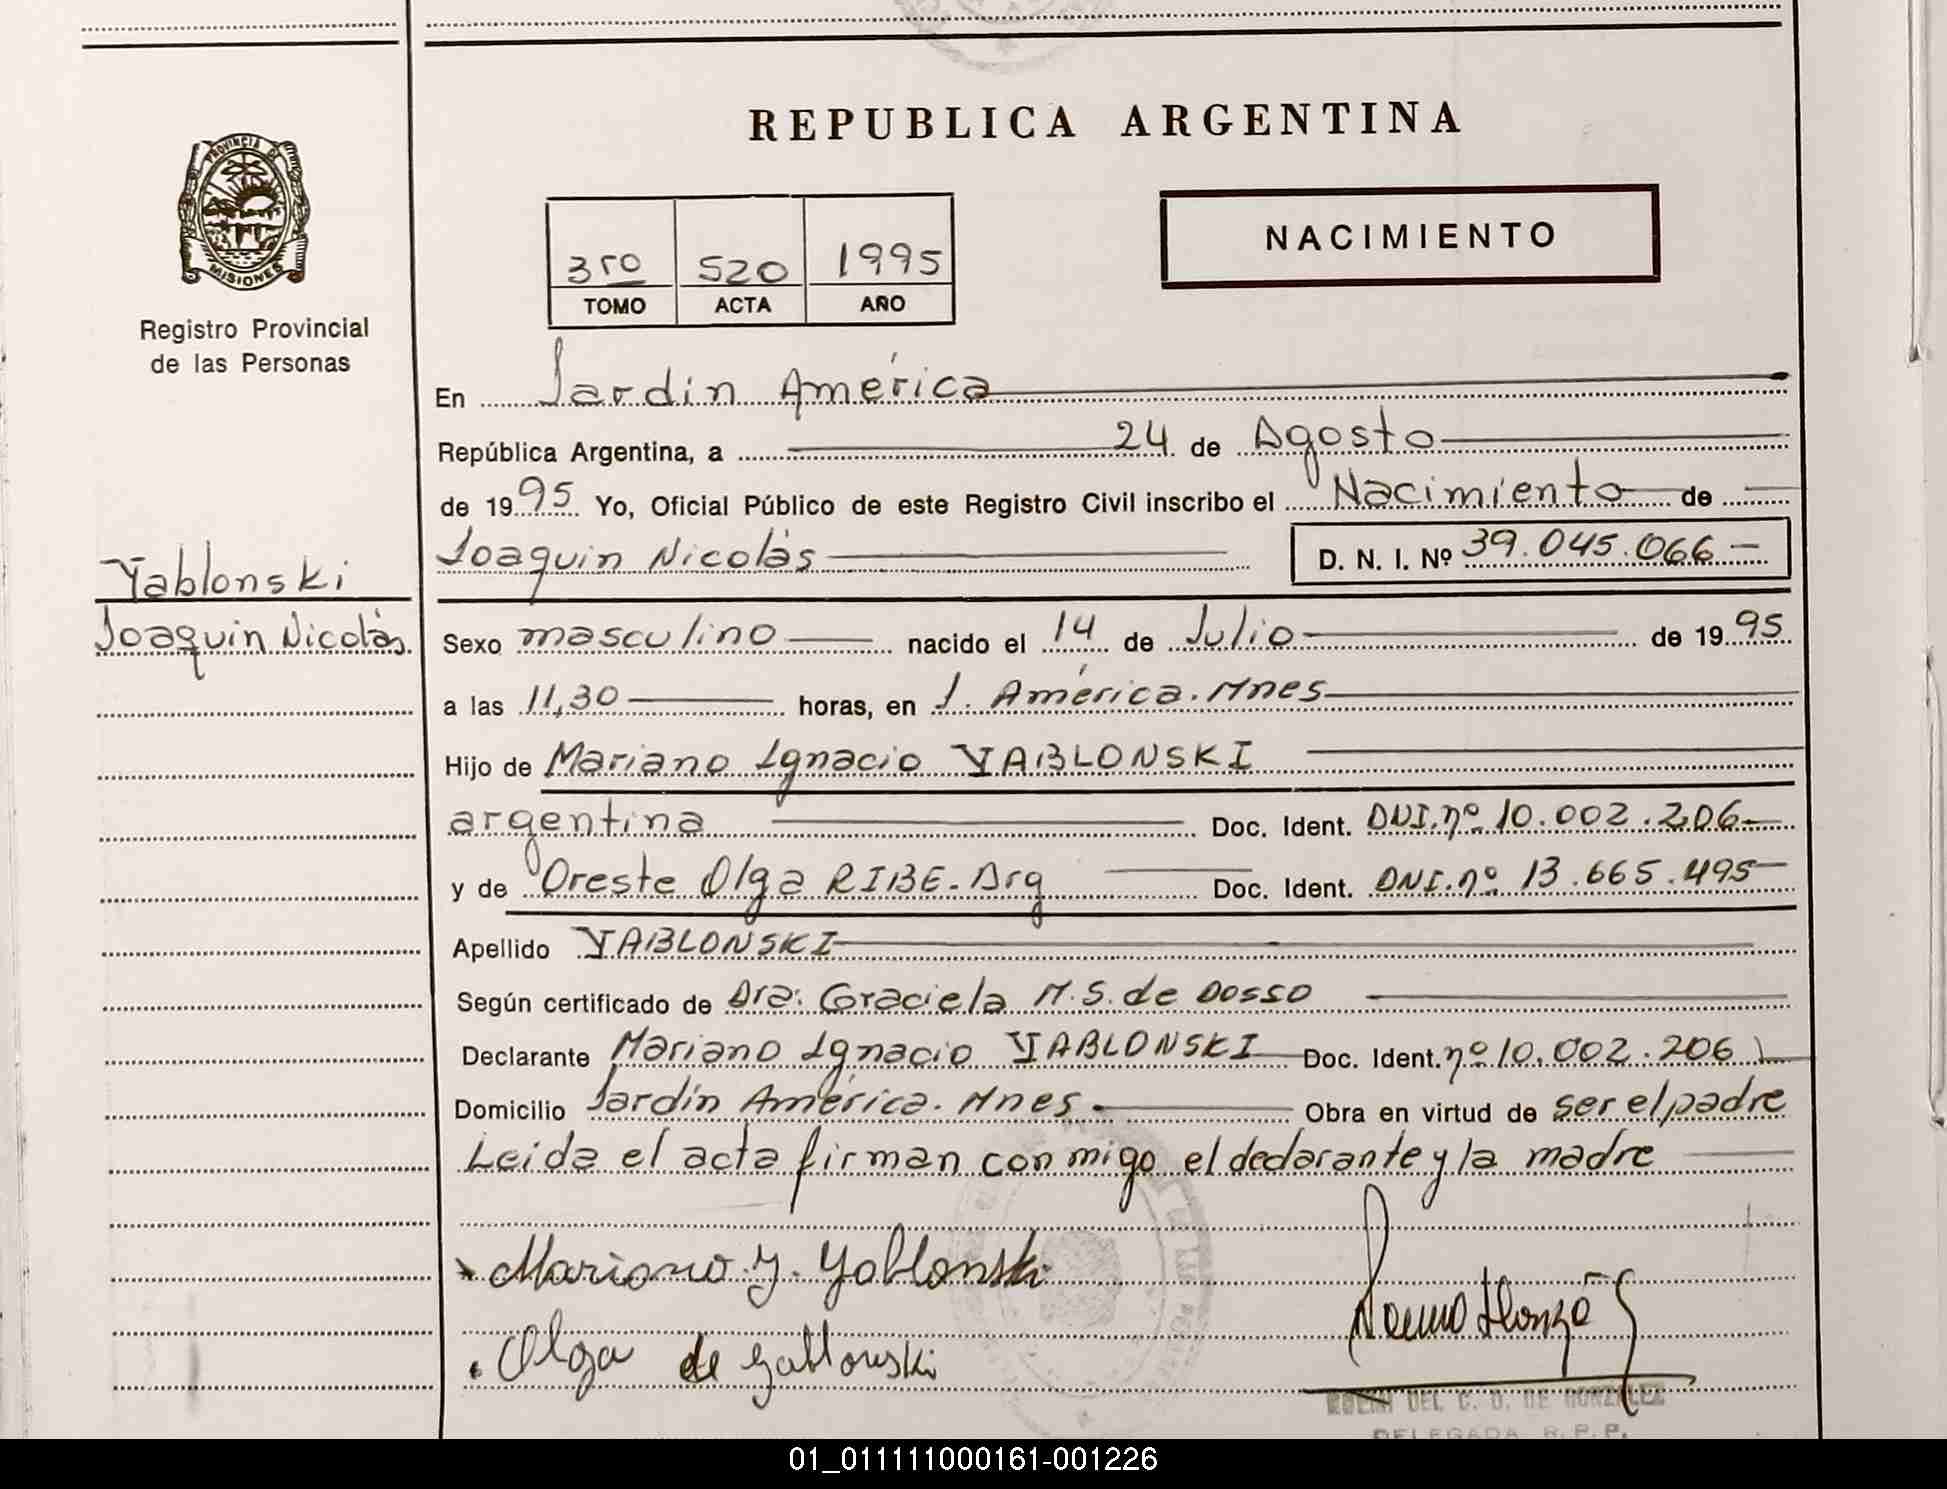 REPUBLICA ARGENTINA
PROVINCIA DE
MISIONES
Registro Provincial
de las Personas
NACIMIENTO
3ro 520 1995
TOMO ACTA AÑO
En Jardín América
República Argentina, a 24 de Agosto
de 1995 Yo, Oficial Público de este Registro Civil inscribo el Nacimiento de
Joaquin Nicolás D. N. I. Nº 39.045.066
Yablonski
Joaquin Nicolás
Sexo masculino nacido el 14 de Julio de 1995
a las 11,30 horas, en J. América. Mnes
Hijo de Mariano Ignacio YABLONSKI
argentina Doc. Ident. DNI. nº 10.002.206
y de Oreste Olga RIBE. Arg Doc. Ident. DNI. nº 13.665.495
Apellido YABLONSKI
Según certificado de Dra: Graciela M. S. de Dosso
Declarante Mariano Ignacio YABLONSKI Doc. Ident. nº 10.002.206
Domicilio Jardín América. Mnes Obra en virtud de ser el padre
Leida el acta firman conmigo el declarante y la madre
Mariano I. Yablonski
Olga de Yablonski
DEL C. D. DE GONZALEZ
DELEGADA R.P.P.
01_011111000161-001226